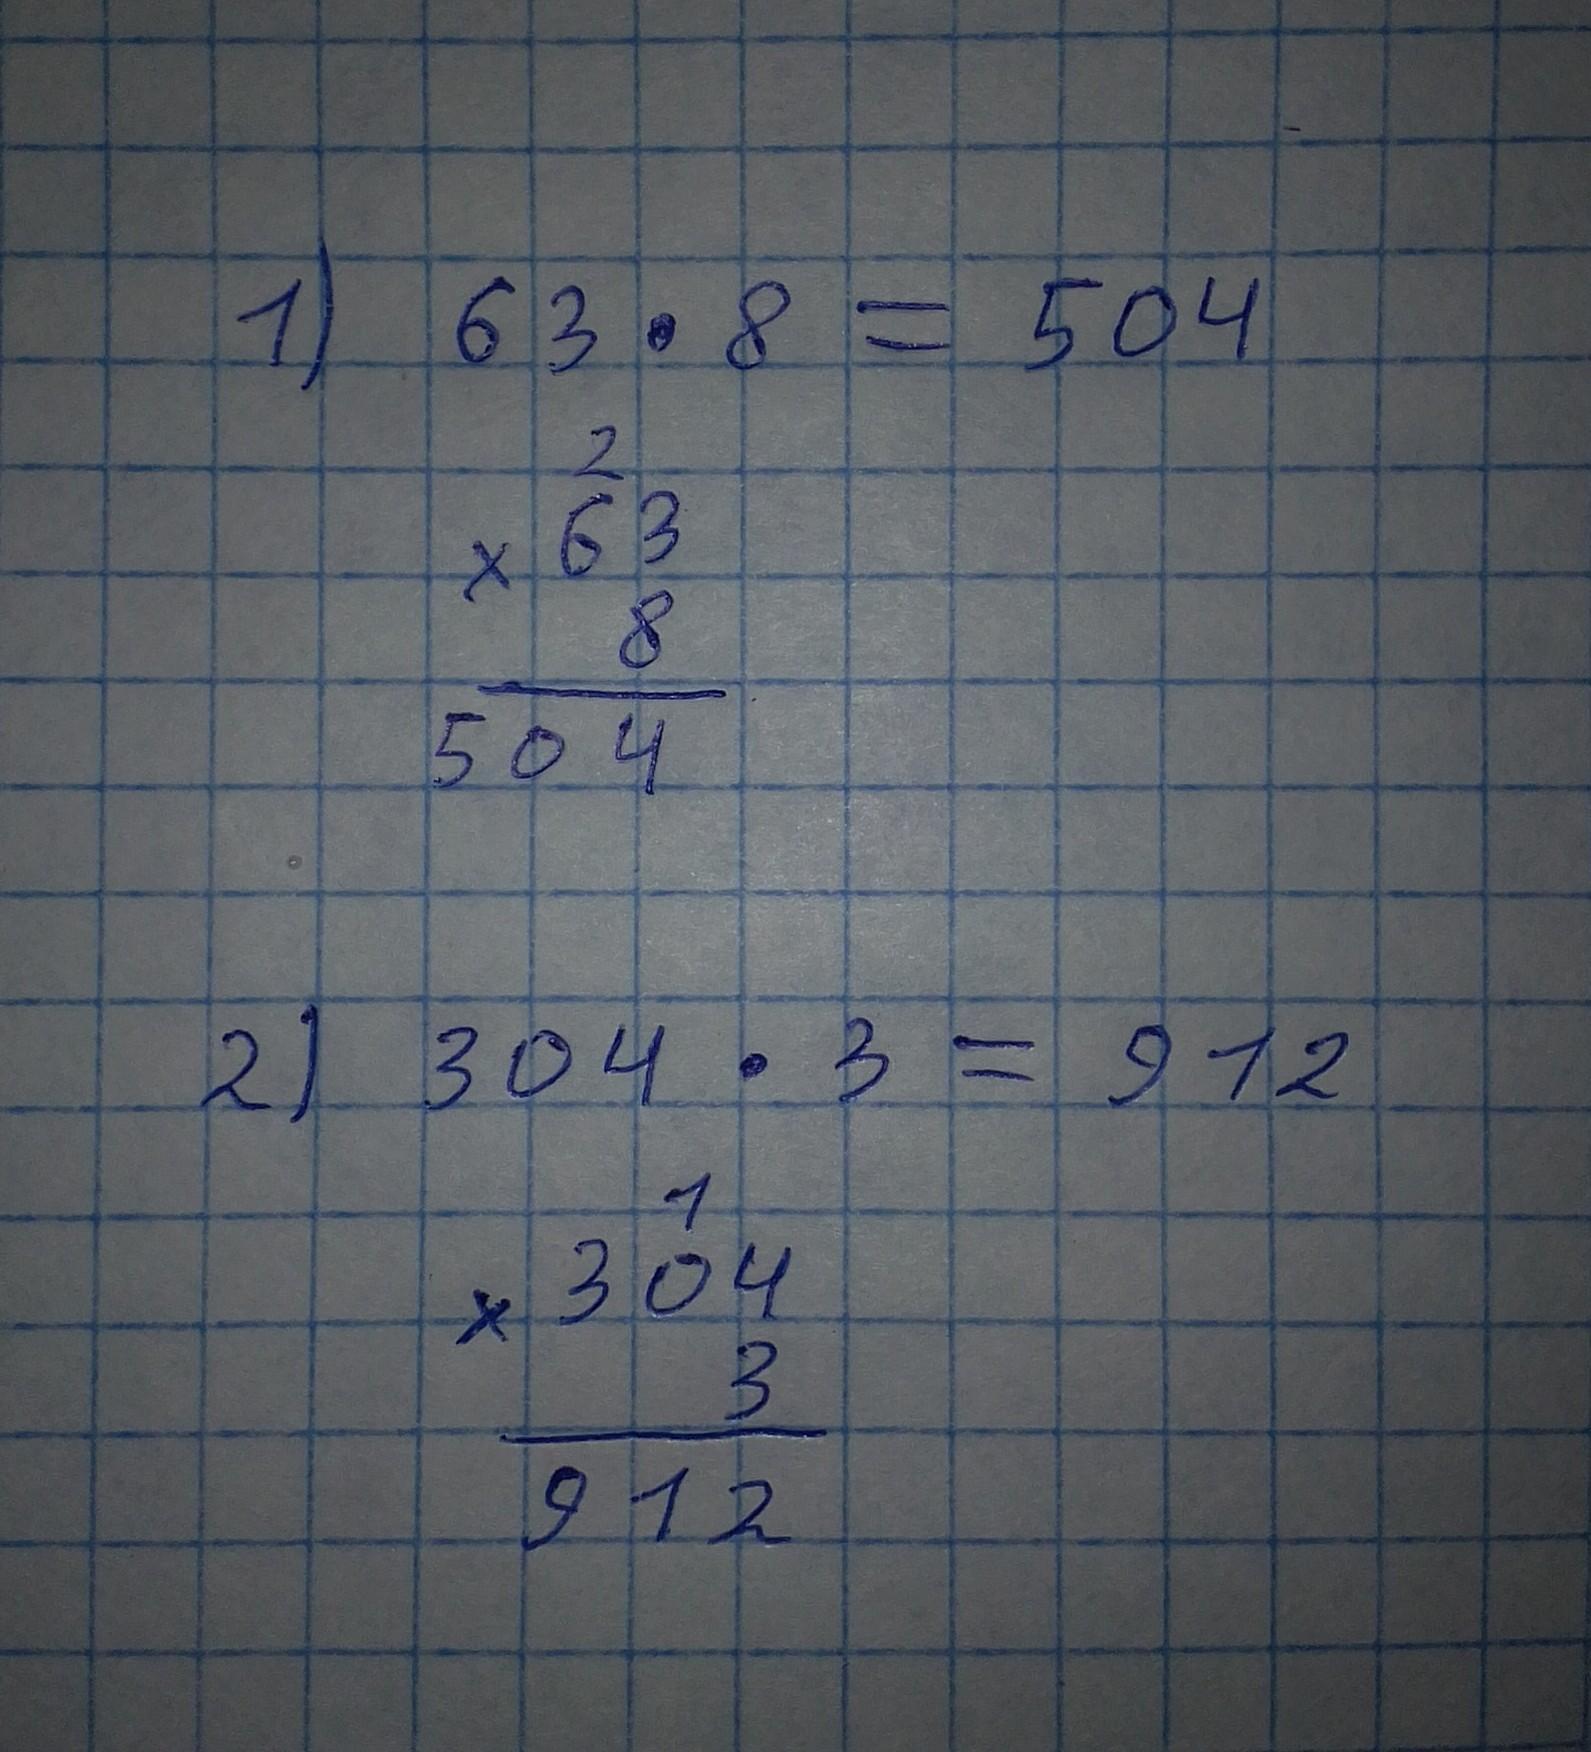 1) 63 • 8 = 504
2
63
×
8
504
2) 304 • 3 = 912
1
304
×
3
912